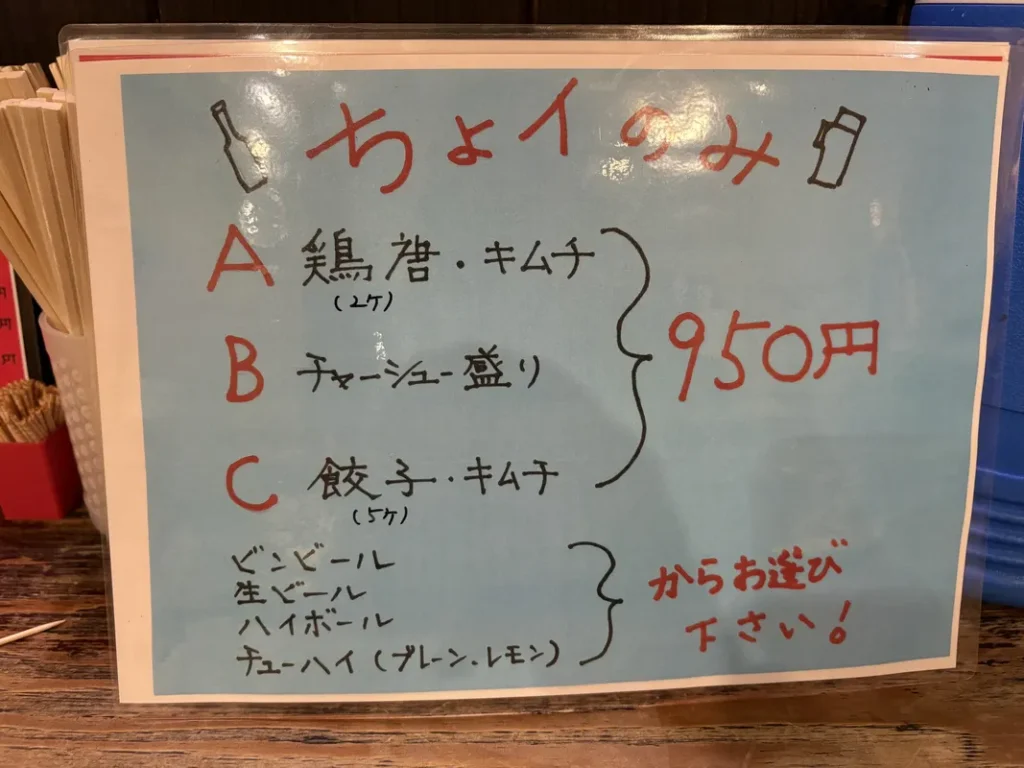 ちょイのみ
A 鶏唐・キムチ
(2ケ)
B チャーシュー盛り
950円
C 餃子・キムチ
(5ケ)
ビンビール
生ビール
ハイボール
チューハイ(プレーン・レモン)
からお選び
下さい!